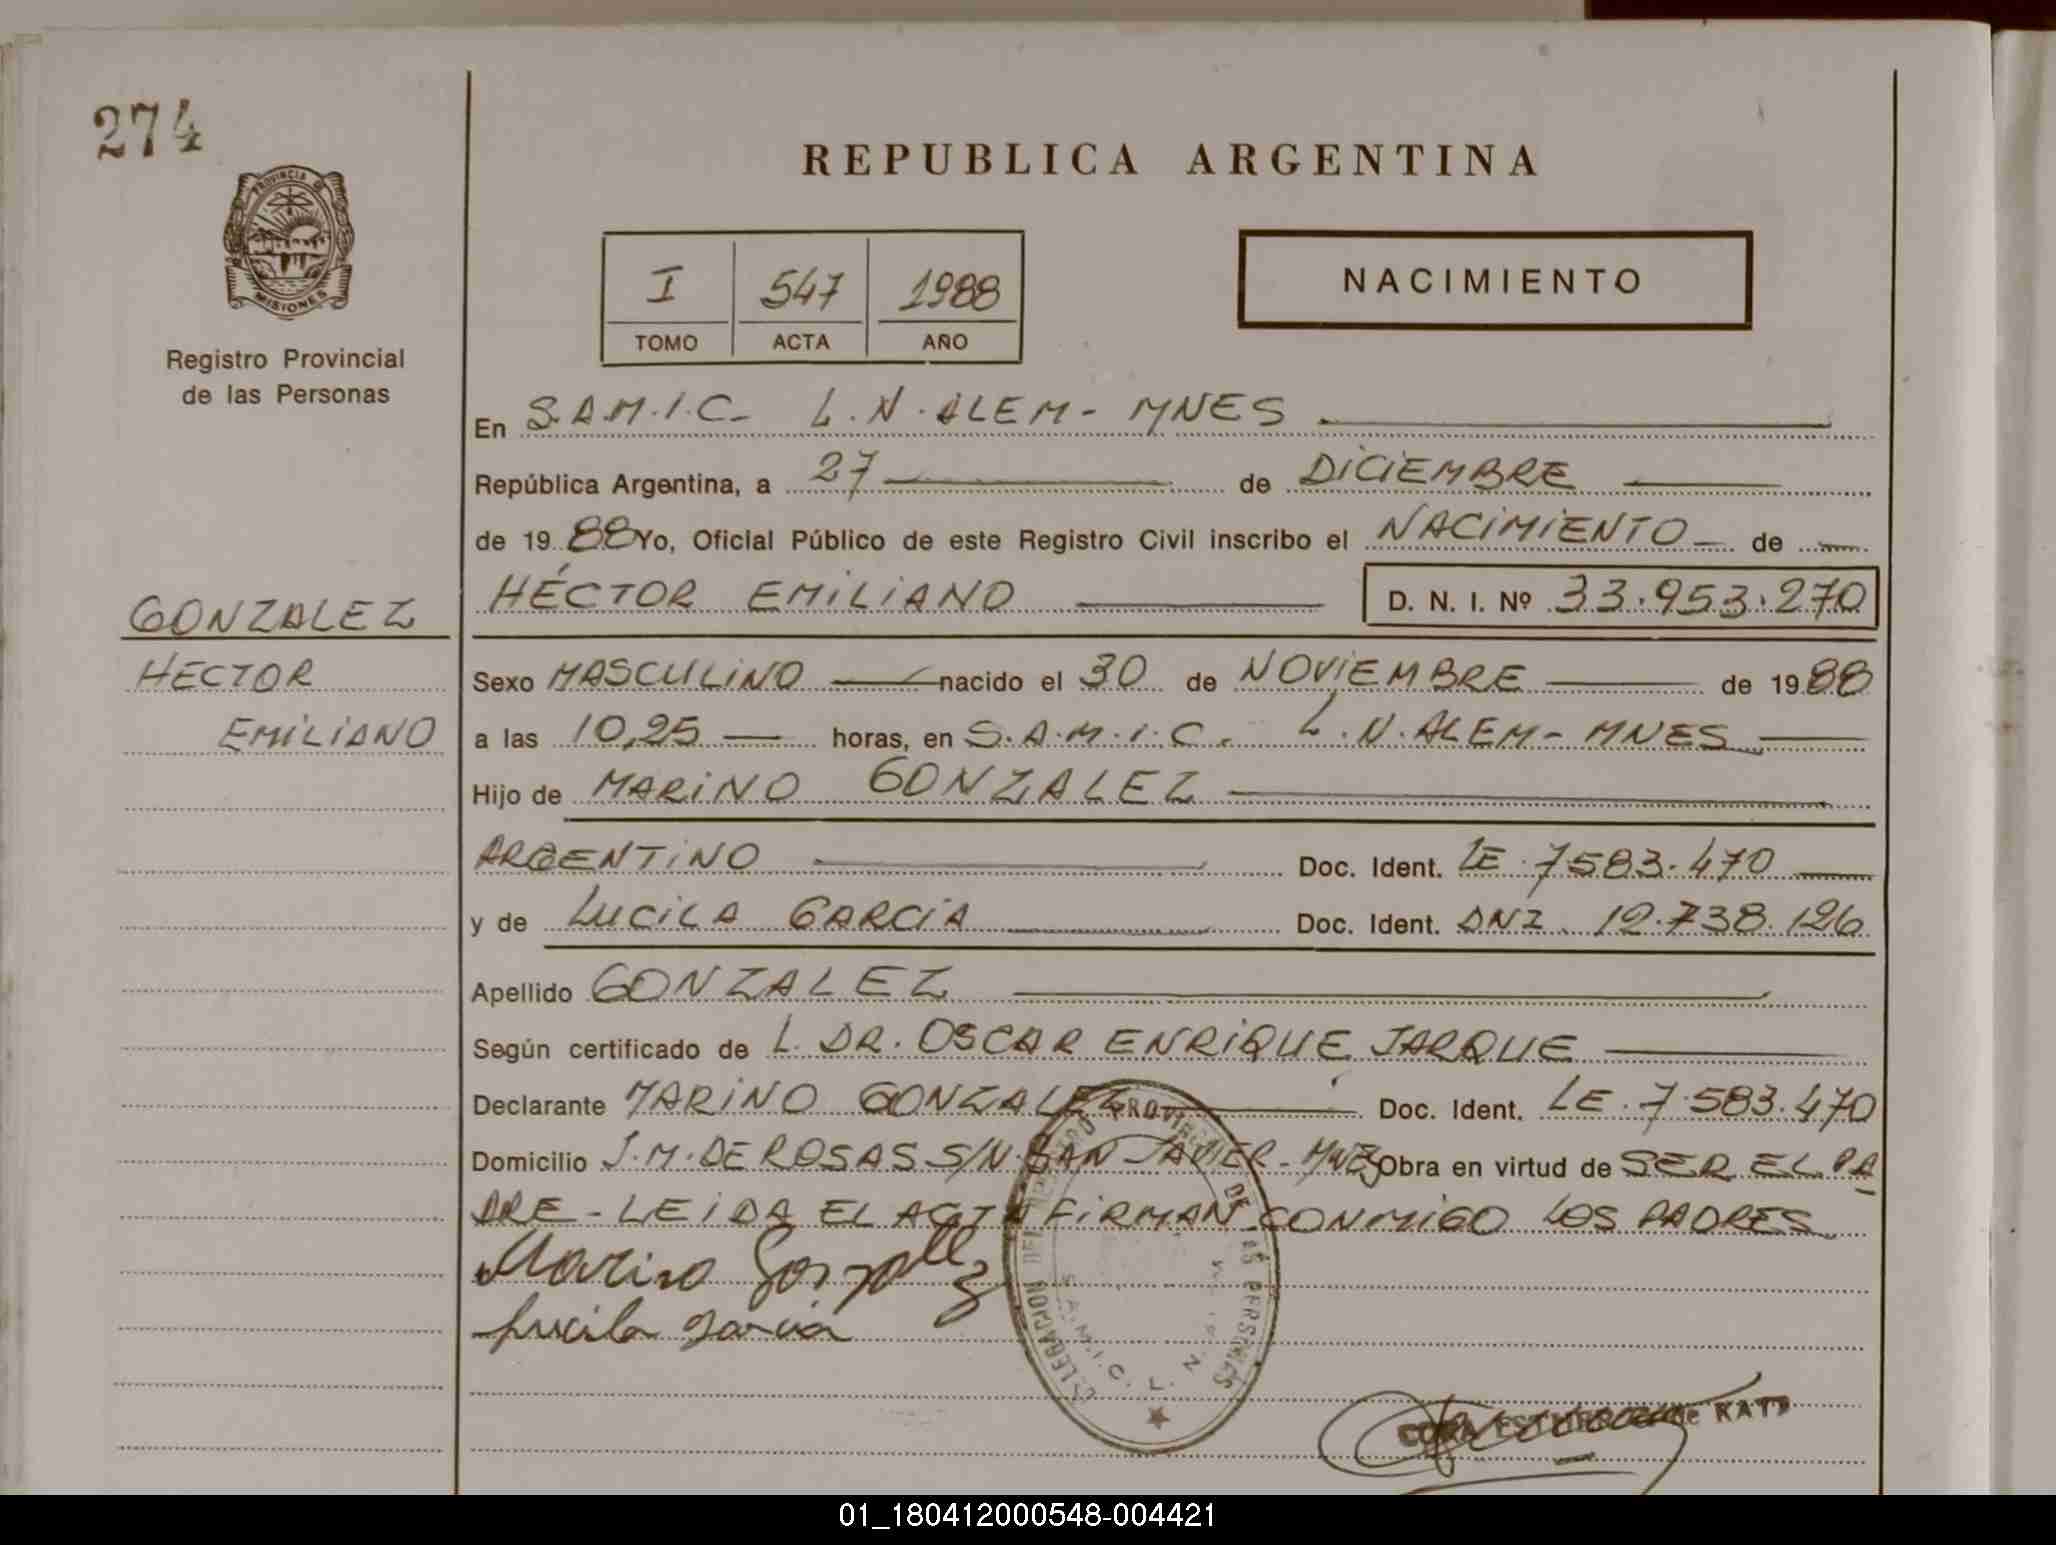 274
PROVINCIA DE
MISIONES
Registro Provincial
de las Personas
GONZALEZ
HECTOR
EMILIANO
REPUBLICA ARGENTINA
I 547 1988
TOMO ACTA AÑO
NACIMIENTO
En S.A.M.I.C- L.N.ALEM- MNES
República Argentina, a 27 de DICIEMBRE
de 19 88 Yo, Oficial Público de este Registro Civil inscribo el NACIMIENTO de
HÉCTOR EMILIANO D. N. I. Nº 33.953.270
Sexo MASCULINO nacido el 30 de NOVIEMBRE de 19 88
a las 10,25 horas, en S.A.M.I.C. L.N.ALEM- MNES
Hijo de MARINO GONZALEZ
ARGENTINO Doc. Ident. LE 7583.470
y de LUCILA GARCIA Doc. Ident. DNI 12.738.126
Apellido GONZALEZ
Según certificado de L. DR. OSCAR ENRIQUE JARQUE
Declarante MARINO GONZALEZ Doc. Ident. LE.7.583.470
Domicilio J.M.DE ROSAS S/N.SAN JAVIER- MNES Obra en virtud de SER EL PA
DRE - LEIDA EL ACTA FIRMAN CONMIGO LOS PADRES
Marino Gonzalez
Lucila Garcia
DELEGACION DEL REGISTRO PROVINCIAL DE LAS PERSONAS
S.A.M.I.C. L. N.
de KATZ
01_180412000548-004421